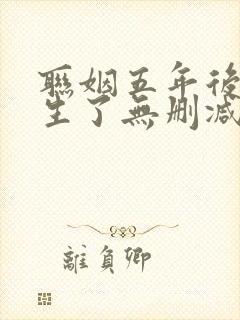 聯姻五年後
生了無刪減
離負卿